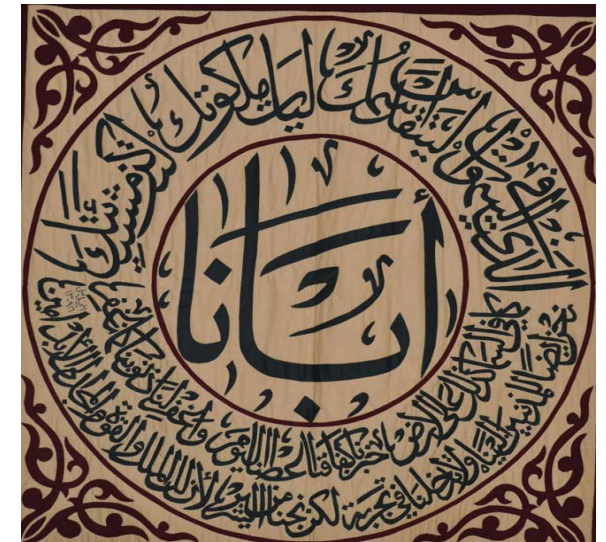 أبانا
الذي في السموات ليتقدس اسمك ليات ملكوتك لتكن مشيئتك
كما في السماء كذلك على الأرض خبزنا كفافنا أعطنا اليوم واغفر لنا ذنوبنا كما نغفر
نحن أيضا للمذنبين إلينا ولا تدخلنا في تجربة لكن نجنا من الشرير لأن لك الملك والقوة والمجد إلى الأبد آمين